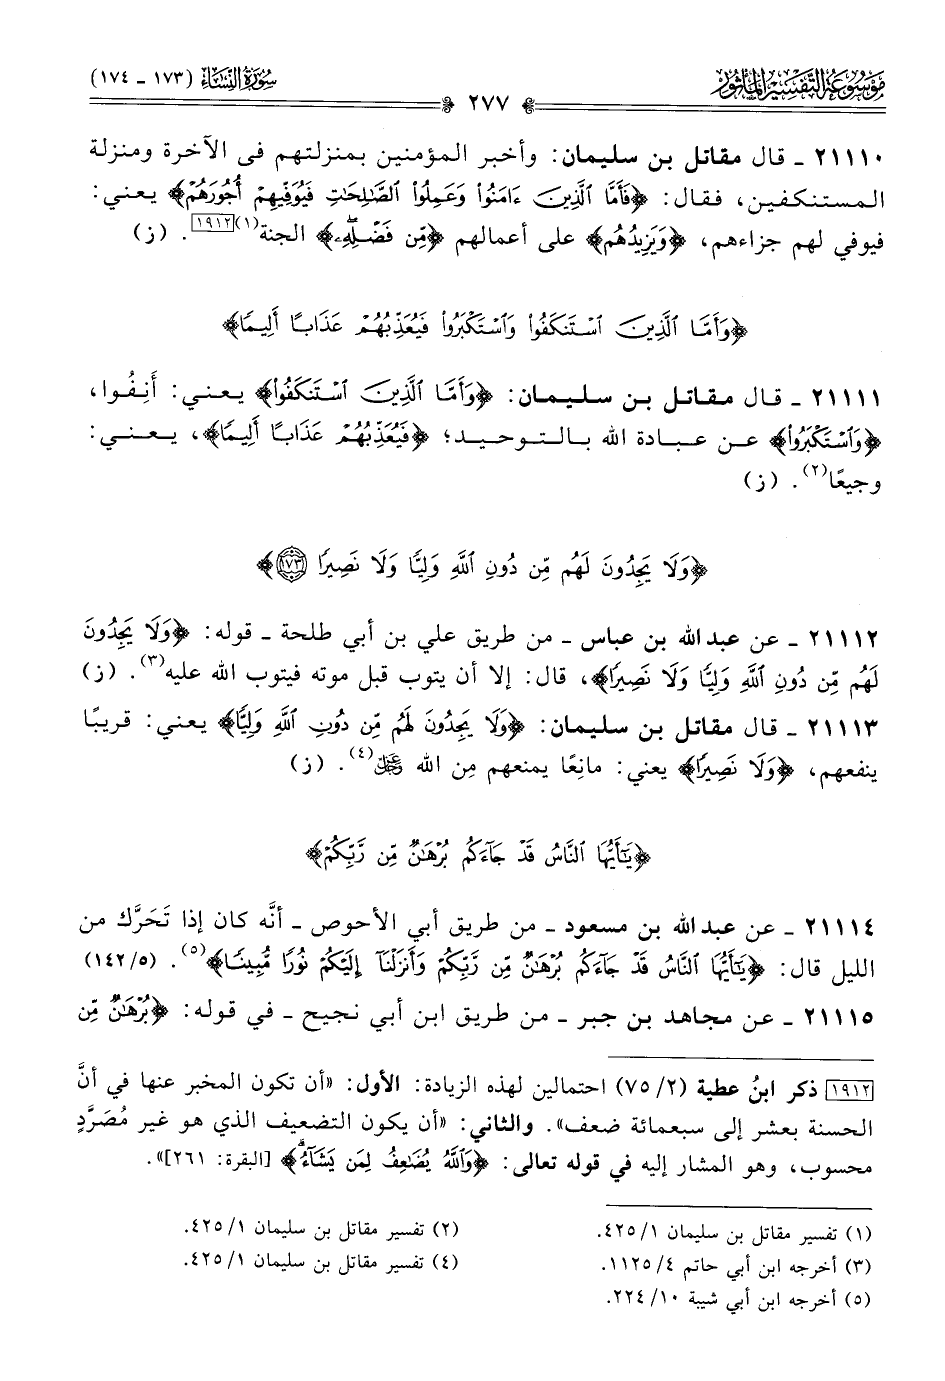 موسوعة التفسير المأثور
سورة النساء (١٧٣ - ١٧٤)
٢٧٧
٢١١١٠ - قال مقاتل بن سليمان: وأخبر المؤمنين بمنزلتهم في الآخرة ومنزلة
المستنكفين، فقال: ﴿فَأَمَّا ٱلَّذِينَ ءَامَنُوا۟ وَعَمِلُوا۟ ٱلصَّٰلِحَٰتِ فَيُوَفِّيهِمْ أُجُورَهُمْ﴾ يعني:
فيوفي لهم جزاءهم، ﴿وَيَزِيدُهُم﴾ على أعمالهم ﴿مِّن فَضْلِهِۦ﴾ الجنة(١)[١٩١٢]. (ز)
﴿وَأَمَّا ٱلَّذِينَ ٱسْتَنكَفُوا۟ وَٱسْتَكْبَرُوا۟ فَيُعَذِّبُهُمْ عَذَابًا أَلِيمًا﴾
٢١١١١ - قال مقاتل بن سليمان: ﴿وَأَمَّا ٱلَّذِينَ ٱسْتَنكَفُوا۟﴾ يعني: أَنِفُوا،
﴿وَٱسْتَكْبَرُوا۟﴾ عن عبادة الله بالتوحيد؛ ﴿فَيُعَذِّبُهُمْ عَذَابًا أَلِيمًا﴾، يعني:
وجيعًا(٢). (ز)
﴿وَلَا يَجِدُونَ لَهُم مِّن دُونِ ٱللَّهِ وَلِيًّا وَلَا نَصِيرًا ١٧٣﴾
٢١١١٢ - عن عبد الله بن عباس - من طريق علي بن أبي طلحة - قوله: ﴿وَلَا يَجِدُونَ
لَهُم مِّن دُونِ ٱللَّهِ وَلِيًّا وَلَا نَصِيرًا﴾، قال: إلا أن يتوب قبل موته فيتوب الله عليه(٣). (ز)
٢١١١٣ - قال مقاتل بن سليمان: ﴿وَلَا يَجِدُونَ لَهُم مِّن دُونِ ٱللَّهِ وَلِيًّا﴾ يعني: قريبًا
ينفعهم، ﴿وَلَا نَصِيرًا﴾ يعني: مانِعًا يمنعهم مِن الله ﷻ(٤). (ز)
﴿يَٰٓأَيُّهَا ٱلنَّاسُ قَدْ جَآءَكُم بُرْهَٰنٌ مِّن رَّبِّكُمْ﴾
٢١١١٤ - عن عبد الله بن مسعود - من طريق أبي الأحوص - أنَّه كان إذا تَحَرَّك من
الليل قال: ﴿يَٰٓأَيُّهَا ٱلنَّاسُ قَدْ جَآءَكُم بُرْهَٰنٌ مِّن رَّبِّكُمْ وَأَنزَلْنَآ إِلَيْكُمْ نُورًا مُّبِينًا﴾(٥). (٥/١٤٢)
٢١١١٥ - عن مجاهد بن جبر - من طريق ابن أبي نجيح - في قوله: ﴿بُرْهَٰنٌ مِّن
[١٩١٢] ذكر ابنُ عطية (٢/٧٥) احتمالين لهذه الزيادة: الأول: «أن تكون المخبر عنها في أنَّ
الحسنة بعشر إلى سبعمائة ضعف». والثاني: «أن يكون التضعيف الذي هو غير مُصَرَّدٍ
محسوب، وهو المشار إليه في قوله تعالى: ﴿وَٱللَّهُ يُضَٰعِفُ لِمَن يَشَآءُ﴾ [البقرة: ٢٦١]».
(١) تفسير مقاتل بن سليمان ١/٤٢٥.
(٢) تفسير مقاتل بن سليمان ١/٤٢٥.
(٣) أخرجه ابن أبي حاتم ٤/١١٢٥.
(٤) تفسير مقاتل بن سليمان ١/٤٢٥.
(٥) أخرجه ابن أبي شيبة ١٠/٢٢٤.